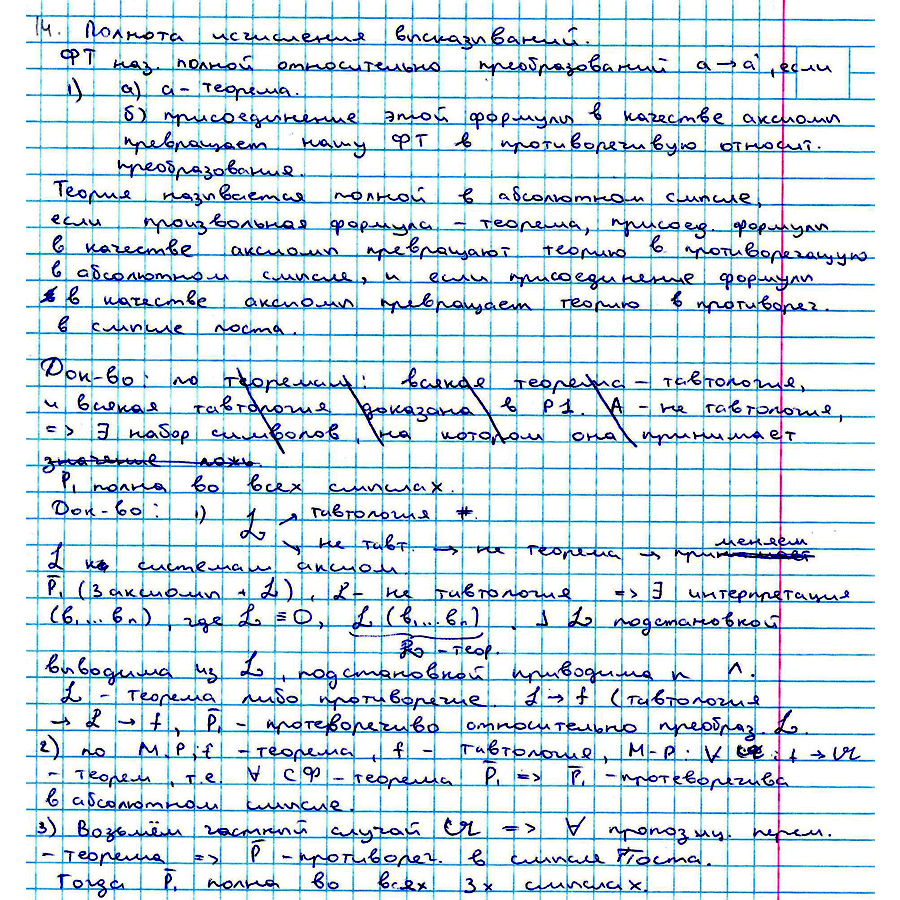 14. Полнота исчисления высказываний.
ФТ наз. полной относительно преобразований a → a', если
1) а) a - теорема.
б) присоединение этой формулы в качестве аксиомы
превращает нашу ФТ в противоречивую относит.
преобразования.
Теория называется полной в абсолютном смысле,
если произвольная формула - теорема, присоед. формулы
в качестве аксиомы превращают теорию в противоречащую
в абсолютном смысле, и если присоединение формулы
в качестве аксиомы превращает теорию в противореч.
в смысле поста.
Док-во: по теоремам: всякая теорема - тавтология,
и всякая тавтология доказана в P1. A - не тавтология,
=> ∃ набор символов, на котором она принимает
значение ложь.
P₁ полна во всех смыслах.
Док-во: 1) L ↗ тавтология #.
↘ не тавт. → не теорема → меняем
L к системам аксиом.
P̄₁ (3 аксиомы + L), L - не тавтология => ∃ интерпретация
(b₁...bₙ), где L ≡ 0, L (b₁...bₙ). L подстановкой
- теор.
выводима из L, подстановкой приводима к Λ.
L - теорема либо противоречие. L → f (тавтология
→ L → f, P̄₁ - протеворечиво относительно преобраз. L.
2) по M.P; f - теорема, f - тавтология, M-P: ∀ 𝔄: f → 𝔄
- теорем, т.е. ∀ СФ - теорема P̄₁ => P̄₁ - протеворечива
в абсолютном смысле.
3) Возьмём частный случай 𝔄 => ∀ пропозиц. перем.
- теорема => P̄ - противореч. в смысле Поста.
Тогда P̄₁ полна во всех 3х смыслах.